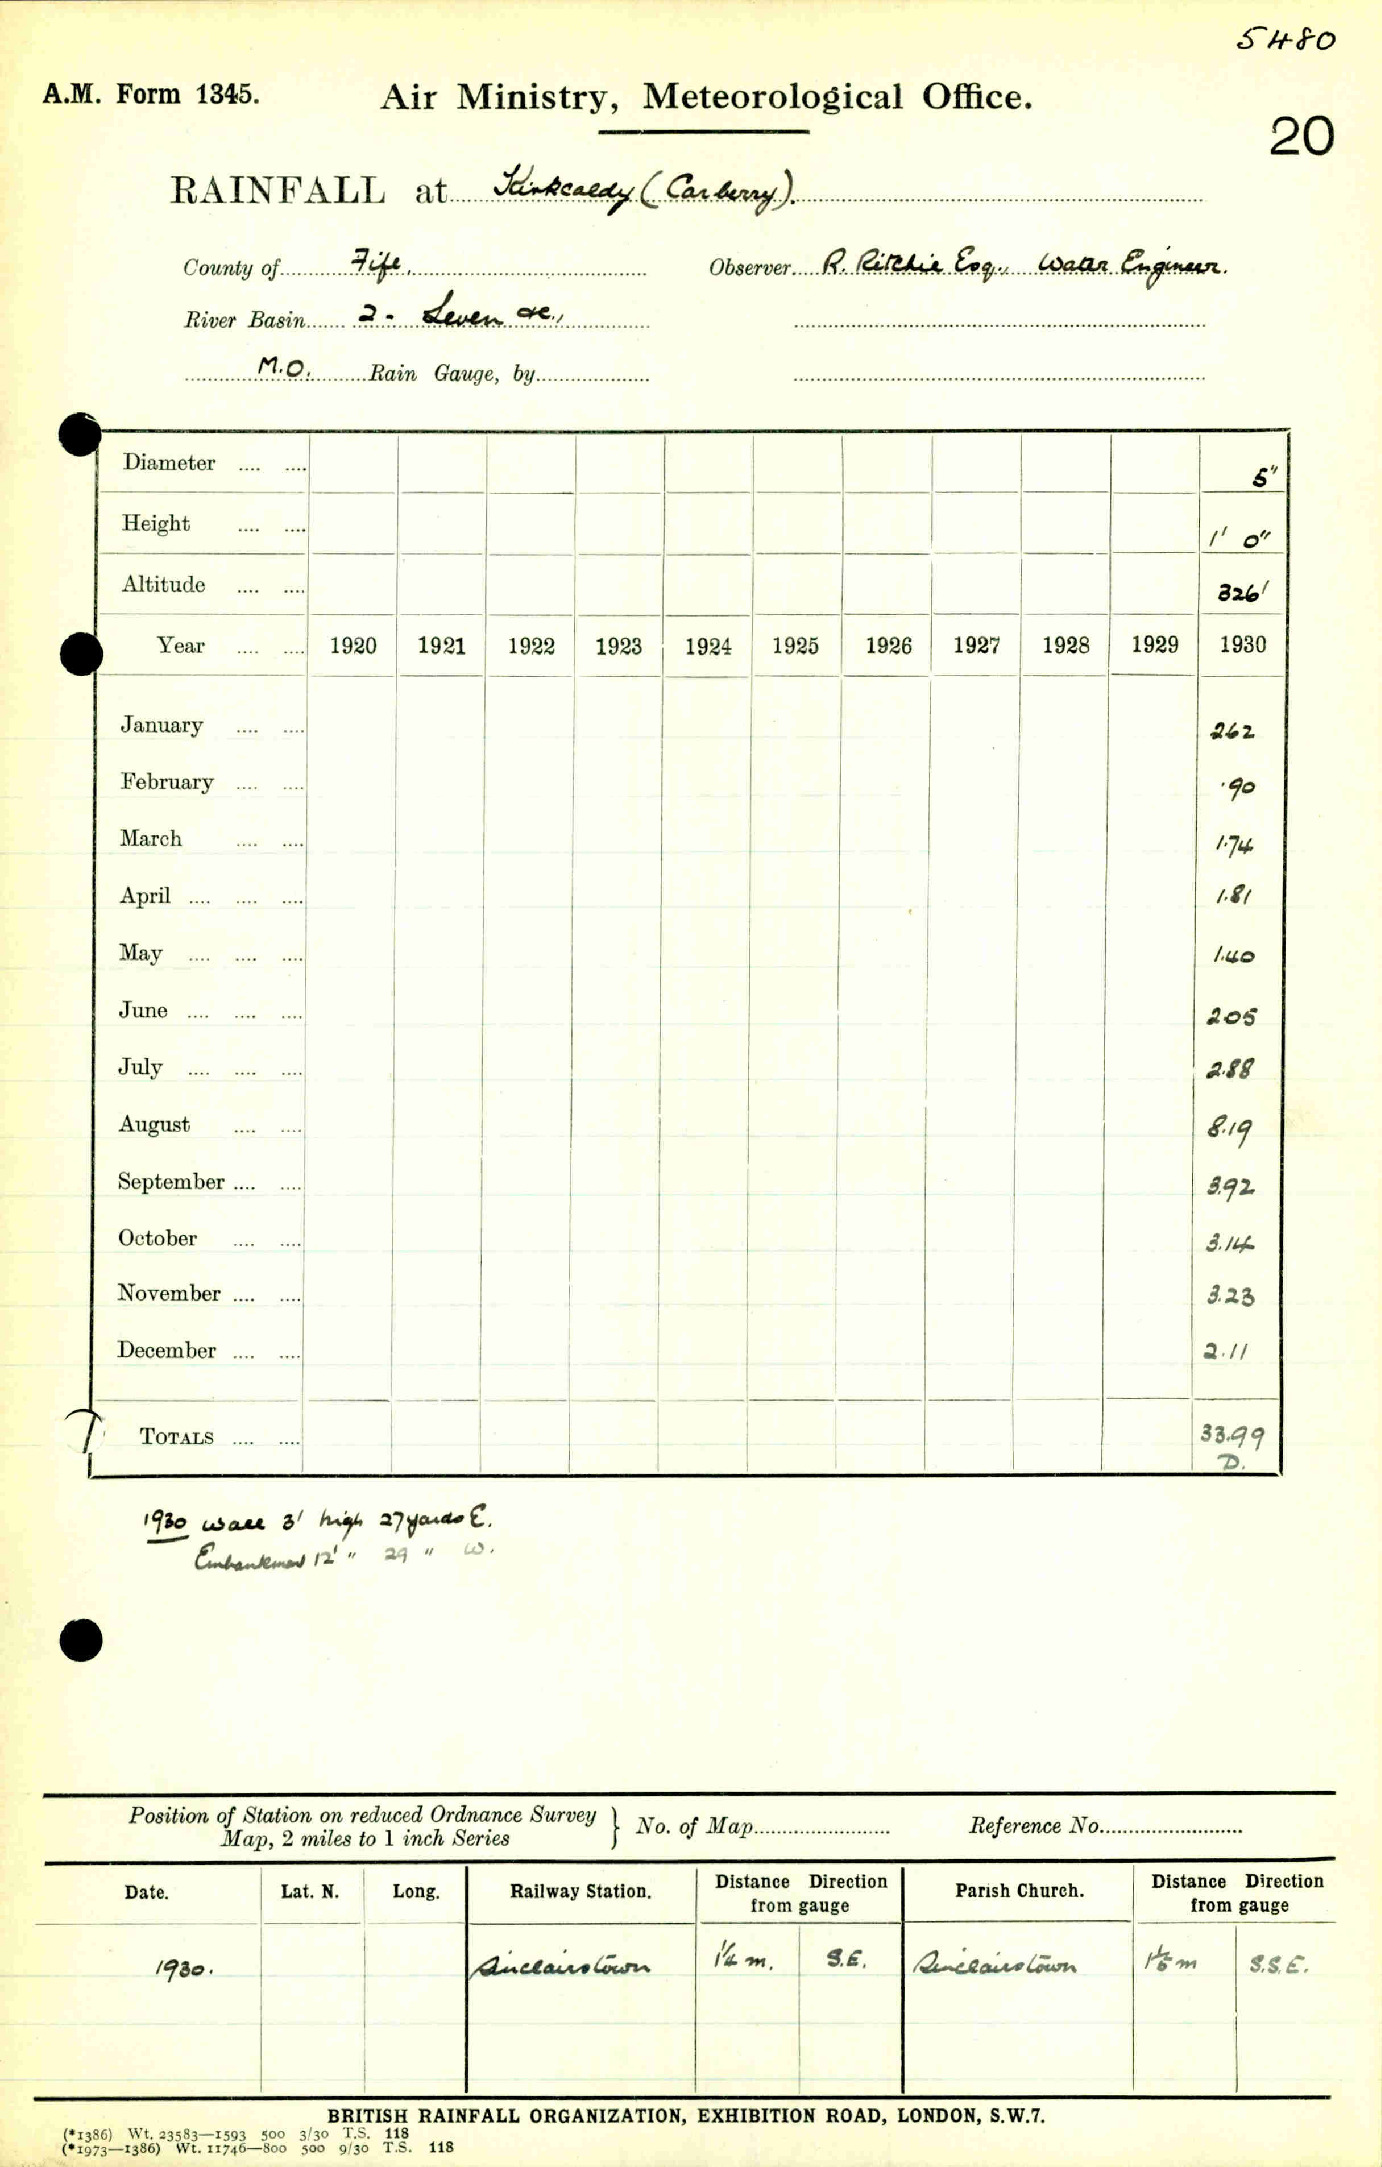 5480
A.M. Form 1345.
Air Ministry, Meteorological Office.
20
RAINFALL at Kirkcaldy (Carberry).
County of Fife. Observer R. Ritchie Esq., Water Engineer.
River Basin 2 - Leven &c.,
M.O. Rain Gauge, by
Diameter 5"
Height 1' 0"
Altitude 326'
Year 1920 1921 1922 1923 1924 1925 1926 1927 1928 1929 1930
January 2.62
February .90
March 1.74
April 1.81
May 1.40
June 2.05
July 2.88
August 8.19
September 3.92
October 3.14
November 3.23
December 2.11
TOTALS 33.99
D.
1930 Wall 3' high 27 yards E.
Embankment 12' " 29 " W.
Position of Station on reduced Ordnance Survey
Map, 2 miles to 1 inch Series } No. of Map Reference No.
Date. Lat. N. Long. Railway Station. Distance Direction from gauge Parish Church. Distance Direction from gauge
1930. Sinclairstown 1¼ m. S.E. Sinclairstown 1½ m S.S.E.
BRITISH RAINFALL ORGANIZATION, EXHIBITION ROAD, LONDON, S.W.7.
(*1386) Wt. 23583—1593 500 3/30 T.S. 118
(*1973—1386) Wt. 11746—800 500 9/30 T.S. 118